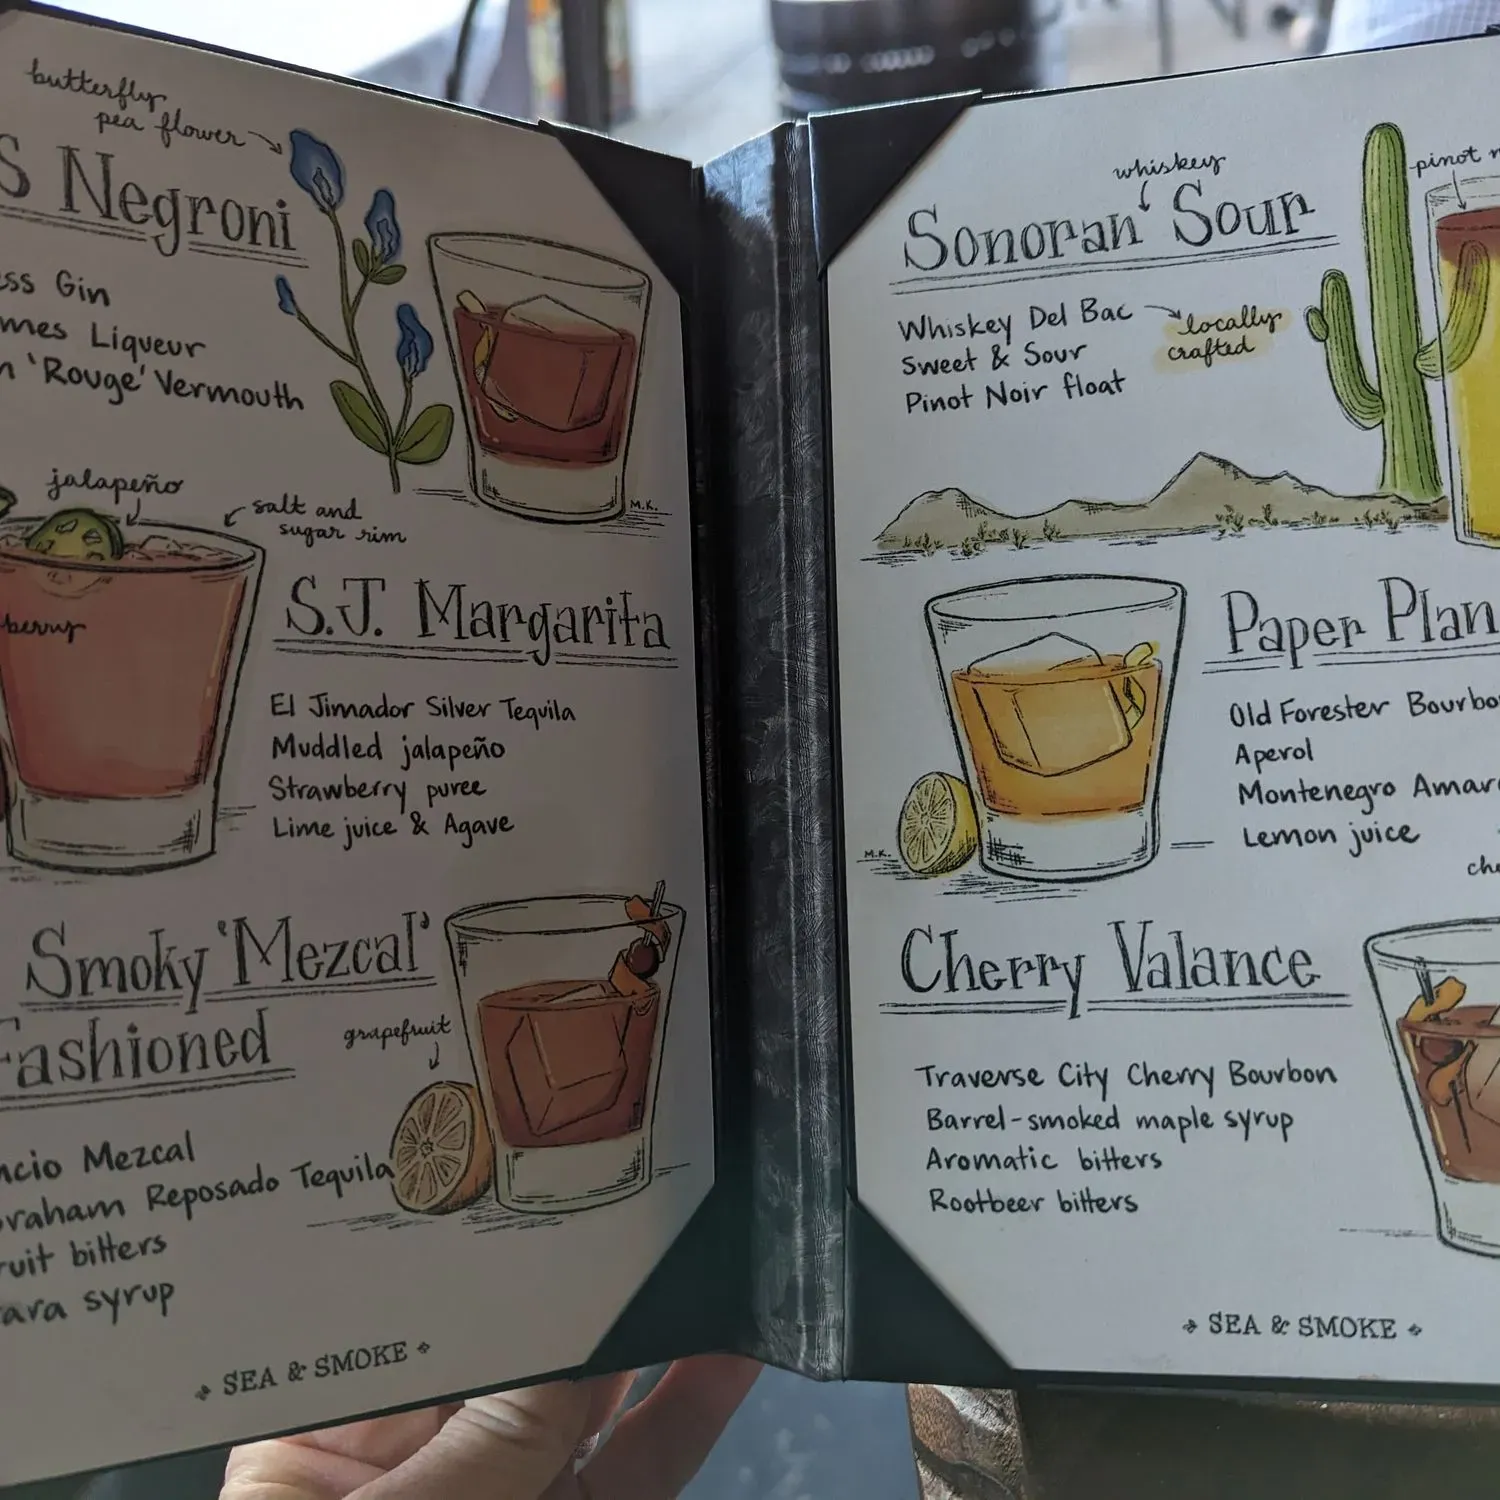 butterfly
pea flower
Negroni
Gin
Liqueur
'Rouge' Vermouth
M.K.
jalapeño
salt and
sugar rim
S.J. Margarita
El Jimador Silver Tequila
Muddled jalapeño
Strawberry puree
Lime juice & Agave
Smoky 'Mezcal'
Fashioned
grapefruit
Mezcal
Reposado Tequila
bitters
syrup
SEA & SMOKE
whiskey
Sonoran Sour
pinot
Whiskey Del Bac
locally
crafted
Sweet & Sour
Pinot Noir float
Paper Plan
Old Forester Bourbo
Aperol
Montenegro Amar
Lemon juice
M.K.
Cherry Valance
Traverse City Cherry Bourbon
Barrel-smoked maple syrup
Aromatic bitters
Rootbeer bitters
SEA & SMOKE